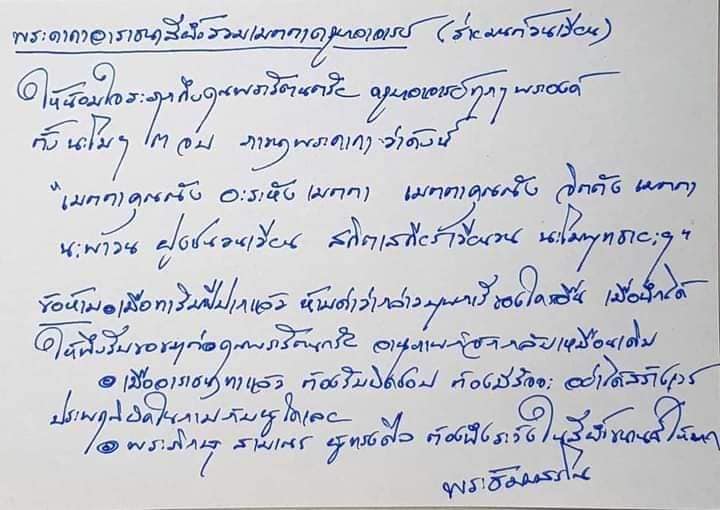 พระคาถาอาราธนาสีผึ้งรวมเมตตาครูบาอาจารย์ (ร่ายมนต์วนเวียน)
ให้น้อมใจระลึกถึงคุณพระรัตนตรัย ครูบาอาจารย์ทุกๆ พระองค์
ตั้งนะโมฯ ๓ จบ ภาวนาพระคาถา ว่าดังนี้
"เมตตาคุณณัง อะระหัง เมตตา เมตตาคุณณัง จิตตัง เมตตา
นะพาวน ฝูงชนวนเวียน นะโมพุทธายะฯ"
ข้อห้าม • เมื่อทาริมฝีปากแล้ว ห้ามด่าว่ากล่าวบุพการีของใครอื่น เมื่อนึกได้
ให้พึงรีบขอขมาต่อคุณพระรัตนตรัย อานุภาพก็จะกลับเหมือนเดิม
• เมื่ออาราธนาทาแล้ว ต้องรับผิดชอบ ต้องมีสัจจะ อย่าได้สร้างเวร
ประพฤติผิดในกามกับผู้ใดเลย
• พระภิกษุ สามเณร ผู้ทรงศีล ต้องพึงระวัง ให้มาก